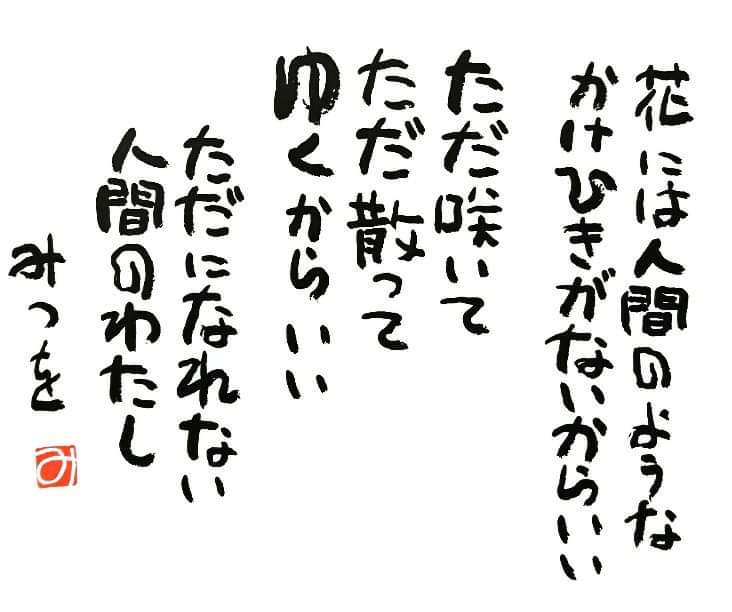 花には人間のような
かけひきがないからいい
ただ咲いて
ただ散って
ゆくからいい
ただになれない
人間のわたし
みつを
み